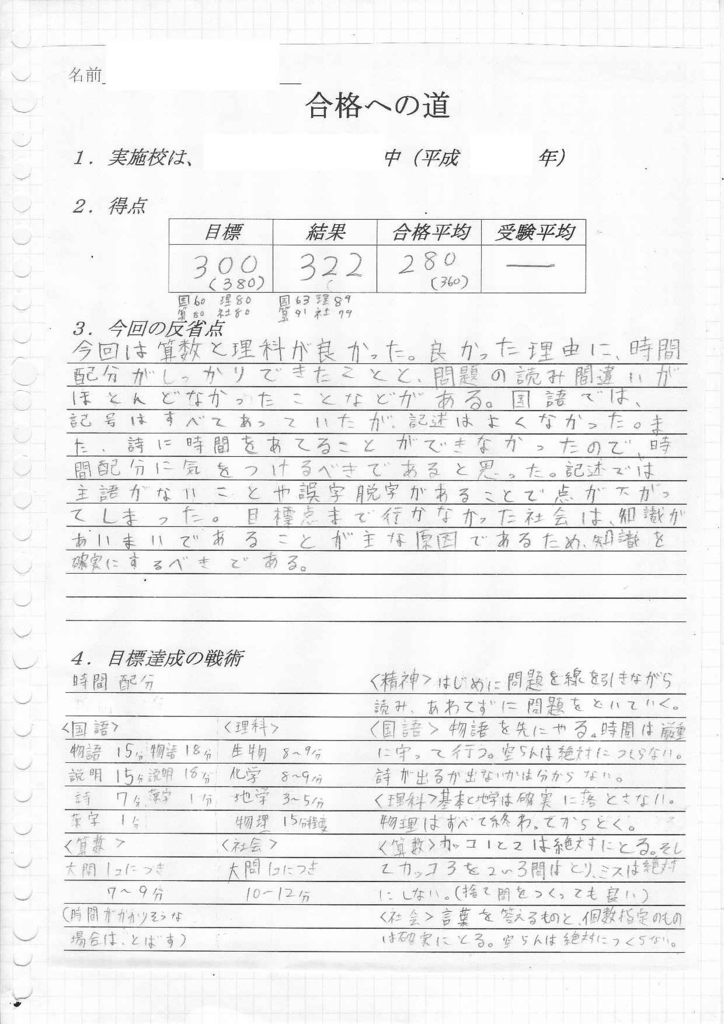 名前
合格への道
1．実施校は、 中（平成 年）
2．得点
目標 結果 合格平均 受験平均
300 322 280 —
(380) (360)
国60 理80 国63 理89
算80 社80 算91 社79
3．今回の反省点
今回は算数と理科が良かった。良かった理由に、時間
配分がしっかりできたことと、問題の読み間違いが
ほとんどなかったことなどがある。国語では、
記号はすべてあっていたが、記述はよくなかった。ま
た、詩に時間をあてることができなかったので、時
間配分に気をつけるべきであると思った。記述では
主語がないことや誤字脱字があることで点が下がっ
てしまった。目標点まで行かなかった社会は、知識が
あいまいであることが主な原因であるため、知識を
確実にするべきである。
4．目標達成の戦術
時間配分
〈国語〉 〈理科〉
物語 15分 物語 18分 生物 8～9分
説明 15分 説明 18分 化学 8～9分
詩 7分 漢字 1分 地学 3～5分
漢字 1分 物理 15分程度
〈算数〉 〈社会〉
大問1コにつき 大問1コにつき
7～9分 10～12分
(時間がかかりそうな
場合は、とばす)
〈精神〉はじめに問題を線を引きながら
読み、あわてずに問題をといていく。
〈国語〉物語を先にやる。時間は厳重
に守って行う。空らんは絶対につくらない。
詩が出るか出ないかは分からない。
〈理科〉基本と地学は確実に落とさない。
物理はすべて終わってからとく。
〈算数〉カッコ1と2は絶対にとる。そし
てカッコ3を2つ3問はとり、ミスは絶対
にしない。(捨て問をつくっても良い)
〈社会〉言葉を答えるものと、個数指定のもの
は確実にとる。空らんは絶対につくらない。